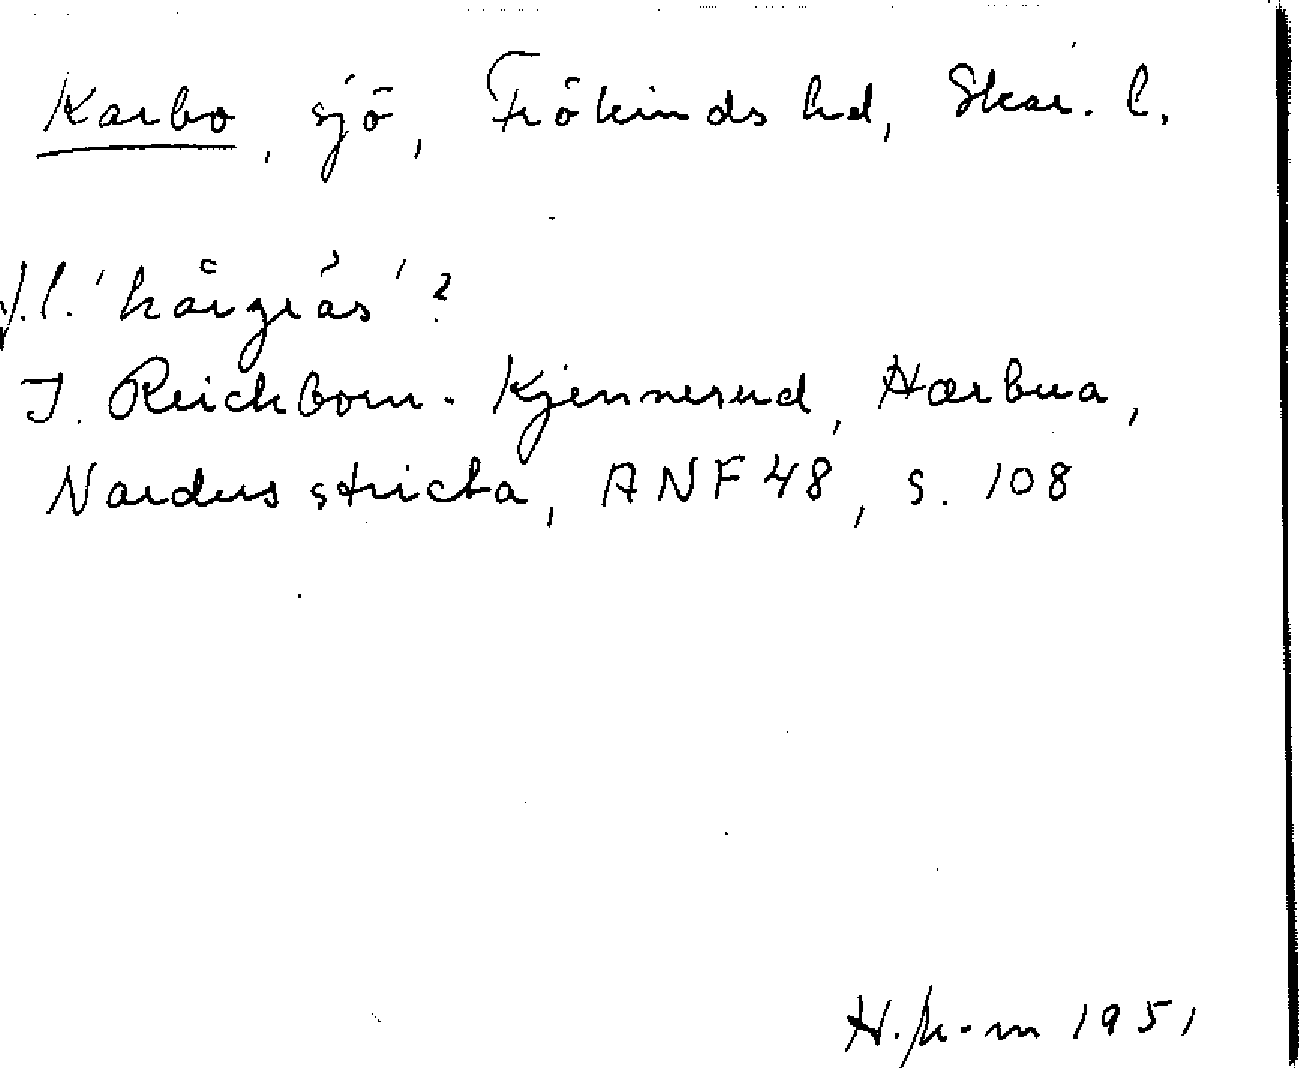 Karbo, sjö, Frökinds hd, Skar. l.
f.l. 'hårgräs'?
I. Reichborn-Kjennerud, Hærbua,
Nardus stricta, ANF 48, s. 108
1951